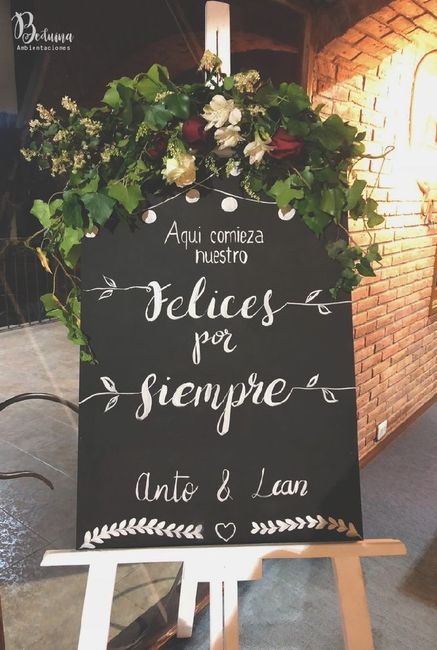 Beduina
Ambientaciones
Aqui comieza
nuestro
Felices
por
siempre
Anto & Lean